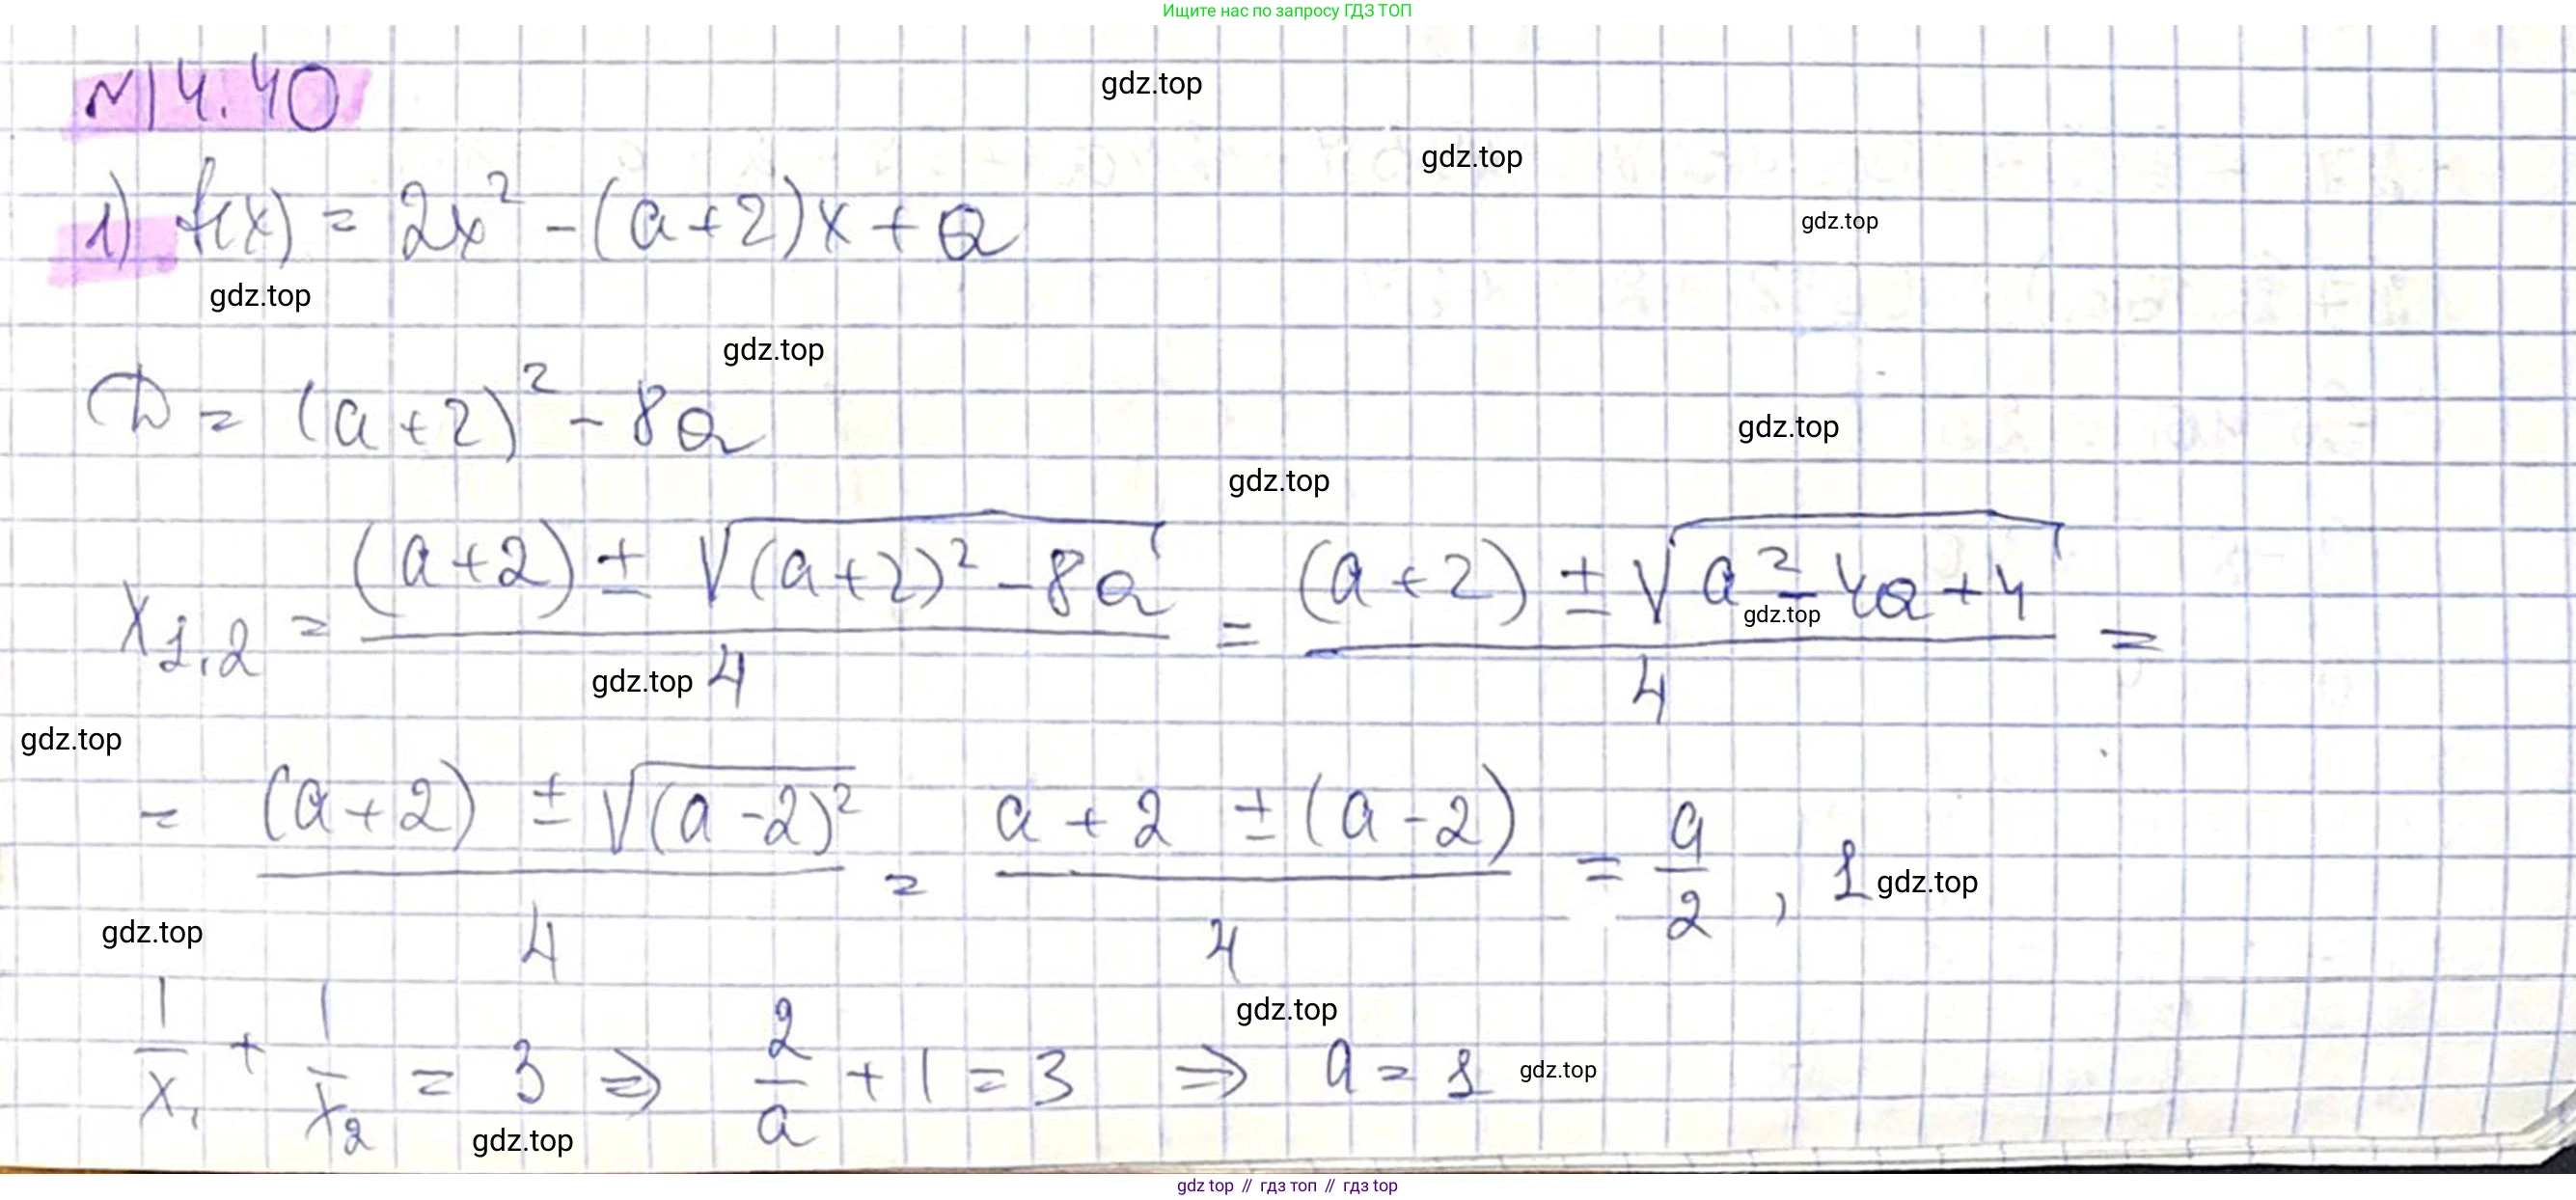 Ищите нас по запросу ГДЗ ТОП
N14.40
gdz.top
gdz.top
1) f(x) = 2x² - (a+2)x + a
gdz.top
gdz.top
gdz.top
D = (a+2)² - 8a
gdz.top
gdz.top
x₁,₂ = ((a+2) ± √((a+2)² - 8a))/4 = ((a+2) ± √(a² - 4a + 4))/4 =
gdz.top
gdz.top
gdz.top
= ((a+2) ± √((a-2)²))/4 = (a + 2 ± (a-2))/4 = a/2 , 1
gdz.top
gdz.top
gdz.top
1/x₁ + 1/x₂ = 3 ⇒ 2/a + 1 = 3 ⇒ a = 1
gdz.top
gdz.top
gdz top // гдз топ // гдз top